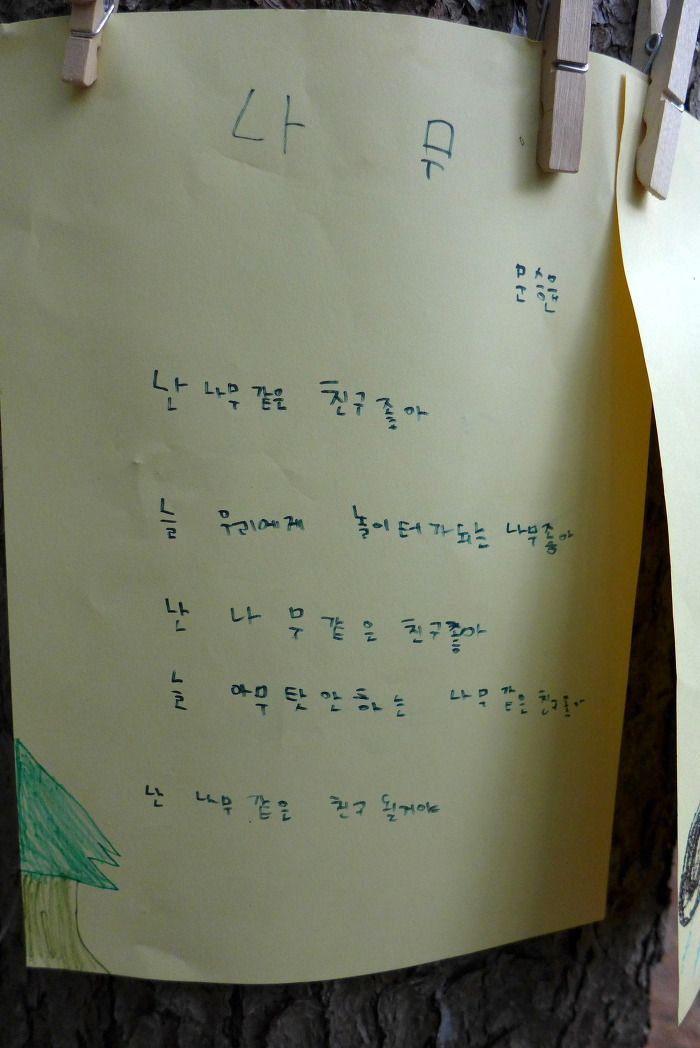 나무
문승윤
난 나무 같은 친구 좋아
늘 우리에게 놀이터가 되는 나무 좋아
난 나무 같은 친구 좋아
늘 아무 탓 안 하는 나무 같은 친구 좋아
난 나무 같은 친구 될거야